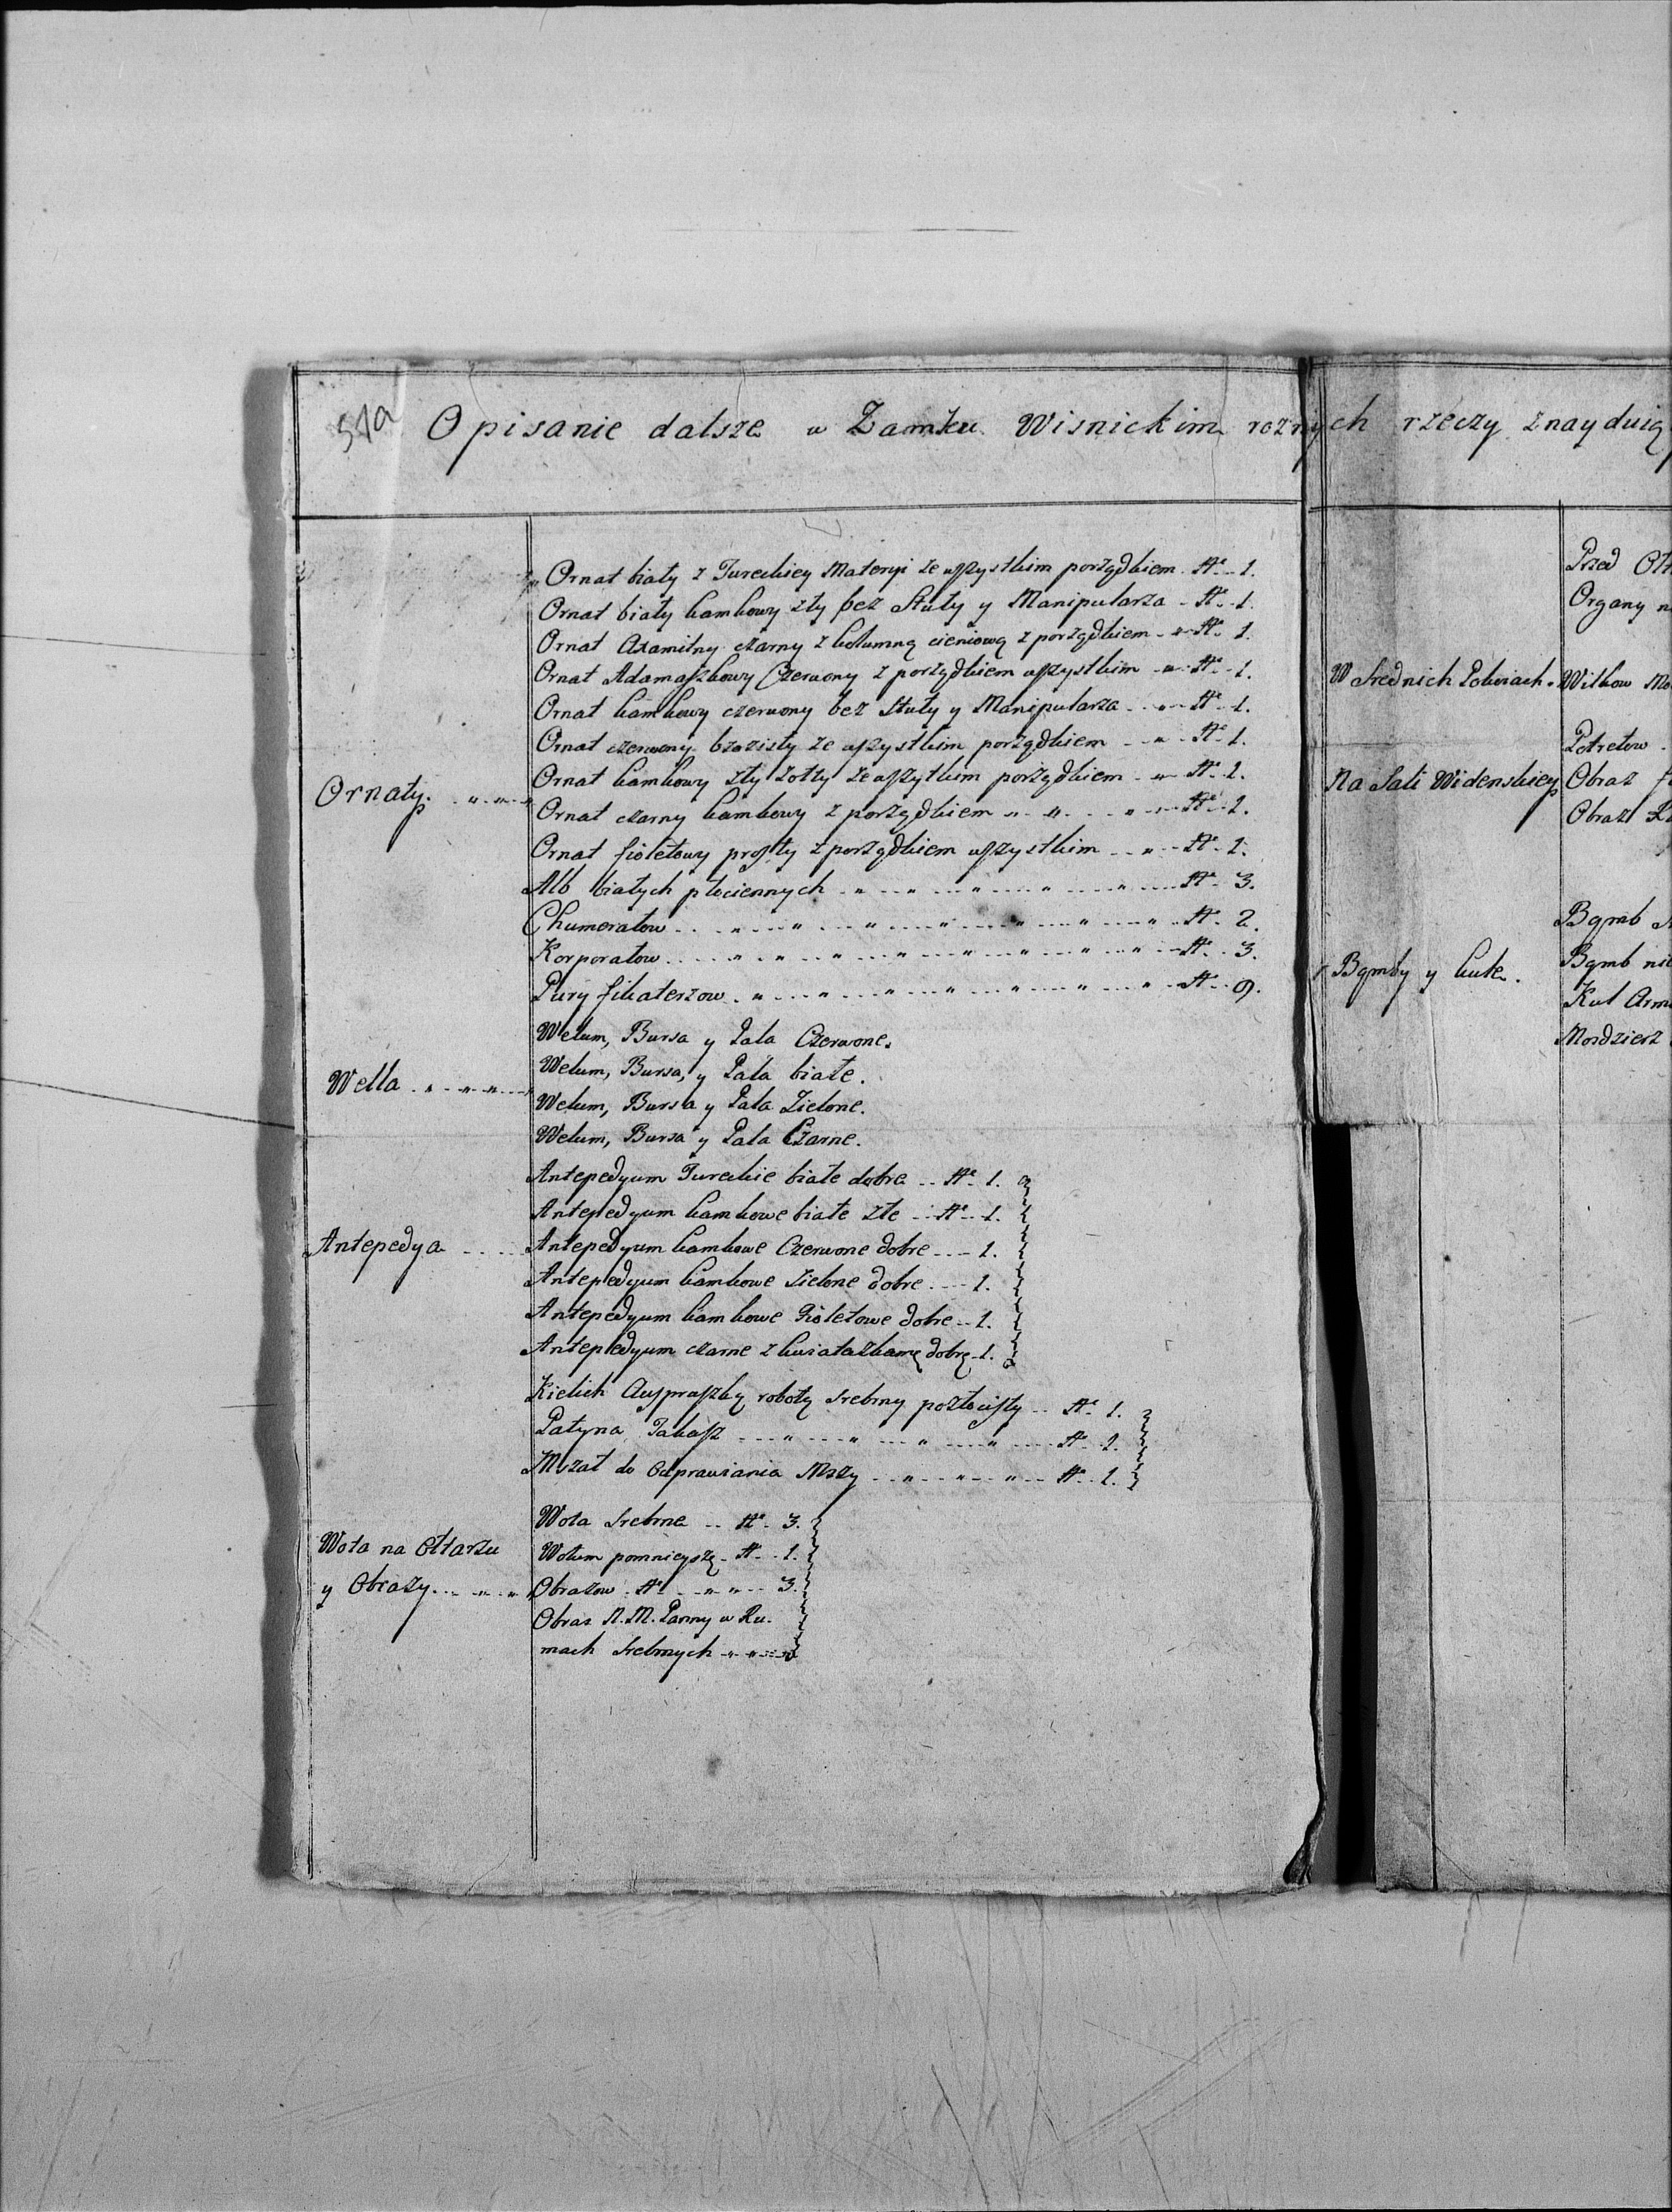 51a
Opisanie dalsze w Zamku Wisnickim roznych rzeczy znayduią
Ornat biały z Tureckiey Materyi ze wszystkim porządkiem No 1.
Ornat biały kamkowy zły bez Stuły y Manipularza No 1.
Ornat Axamitny czarny z kolumną cieniową z porządkiem No 1.
Ornat Adamaszkowy Czerwony z porządkiem wszystkim No 1.
Ornat kamkowy czerwony bez Stuły y Manipularza No 1.
Ornat czerwony brozisty ze wszystkim porządkiem No 1.
Ornaty
Ornat kamkowy zły żołty ze wszytkim porządkiem No 1.
Ornat czarny kamkowy z porządkiem No 1.
Ornat fioletowy prosty z porządkiem wszystkim No 1.
Alb białych płóciennych No 3.
Chumerałow No 2.
Korporałow No 3.
Pury fikaterzow No 9.
Welum, Bursa y Pala Czerwone.
Wella
Welum, Bursa, y Pala białe.
Welum, Bursa y Pala Zielone.
Welum, Bursa y Pala Czarne.
Antepedyum Tureckie białe dobre No 1.
Antepedyum kamkowe białe złe No 1.
Antepedya
Antepedyum kamkowe Czerwone dobre 1.
Antepedyum kamkowe Zielone dobre 1.
Antepedyum kamkowe Fioletowe dobre 1.
Antepedyum czarne z kwiatuszkamę dobrę 1.
Kielich Auspraszką robotą srebrny pozłocisty No 1.
Patyna Takasz No 1.
Mszał do Odprawiania Mszy No 1.
Wota Srebrne No 3.
Wota na Ołtarzu
Wotum pomnieyszę No 1.
y Obrazy
Obrazow No 3.
Obraz N. M. Panny w Ra.
mach Srebrnych
Przed Ołt
Organy n
W Srednich Pokoiach
Wilkow
Potretow
Na Sali Widenskiey
Obraz
Obraz
Bąmb
Bąmby y kule.
Bąmb nie
Kul Arm
Mozdzierz